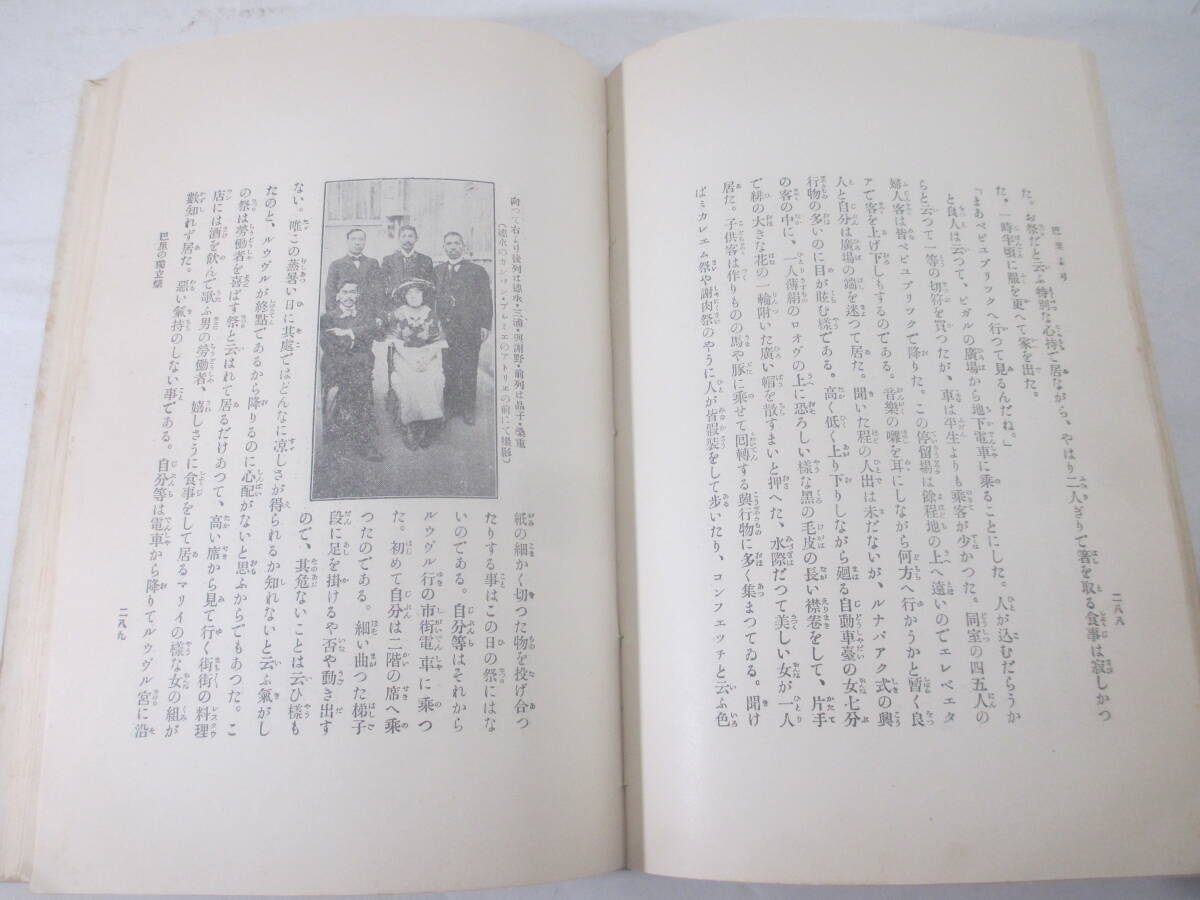 巴里より
二八八
た。お祭だと云ふ特別な心持で居ながら、やはり二人ぎりで箸を取る食事は寂しかつ
た。一時半頃に服を更へて家を出た。
「まあレピユブリツクへ行つて見るんだね。」
と良人は云つて、ピガルの廣場から地下電車に乘ることにした。人が込むだらうか
らと云つて一等の切符を買つたが、車は平生よりも乘客が少かつた。同室の四五人の
婦人客は皆レピユブリツクで降りた。この停留場は餘程地の上へ遠いのでエレベエタ
アで客を上げ下しもするのである。音樂の囃を耳にしながら何方へ行かうかと暫く良
人と自分は廣場の端を迷つて居た。聞いた程の人出は未だないが、ルナパアク式の興
行物の多いのに目が眩む樣である。高く低く上り下りしながら廻る自動車臺の女七分
の客の中に、一人薄絹のロオヴの上に恐ろしい樣な黒の毛皮の長い襟卷をして、片手
で緋の大きな花の一輪附いた廣い帽を散すまいと押へた、水際だつて美しい女が一人
居た。子供客は作りものの馬や豚に乘せて回轉する興行物に多く集まつてゐる。聞け
ばミカレエム祭や謝肉祭のやうに人が皆假裝をして歩いたり、コンフエツチと云ふ色
紙の細かく切つた物を投げ合つ
たりする事はこの日の祭にはな
いのである。自分等はそれから
ルウヴル行の市街電車に乘つ
た。初めて自分は二階の席へ乘
つたのである。細い曲つた梯子
段に足を掛けるや否や動き出す
ので、其危ないことは云ひ樣も
向つて右より後列は德永・三浦・與謝野・前列は晶子・桑重
（德永のカンパン・プルミエのアトリエの前にて撮影）
ない。唯この蒸暑い日に其處ではどんなに凉しさが得られるか知れないと云ふ氣がし
たのと、ルウヴルが終點であるから降りるのに心配がないと思ふからでもあつた。こ
の祭は勞働者を喜ばす祭と云はれて居るだけあつて、高い席から見て行く街街の料理
店には酒を飮んで歌ふ男の勞働者、嬉しさうに食事をして居るマリイの樣な女の組が
數知れず居た。惡い氣持のしない事である。自分等は電車から降りてルウヴル宮に沿
巴里の獨立祭
二八九